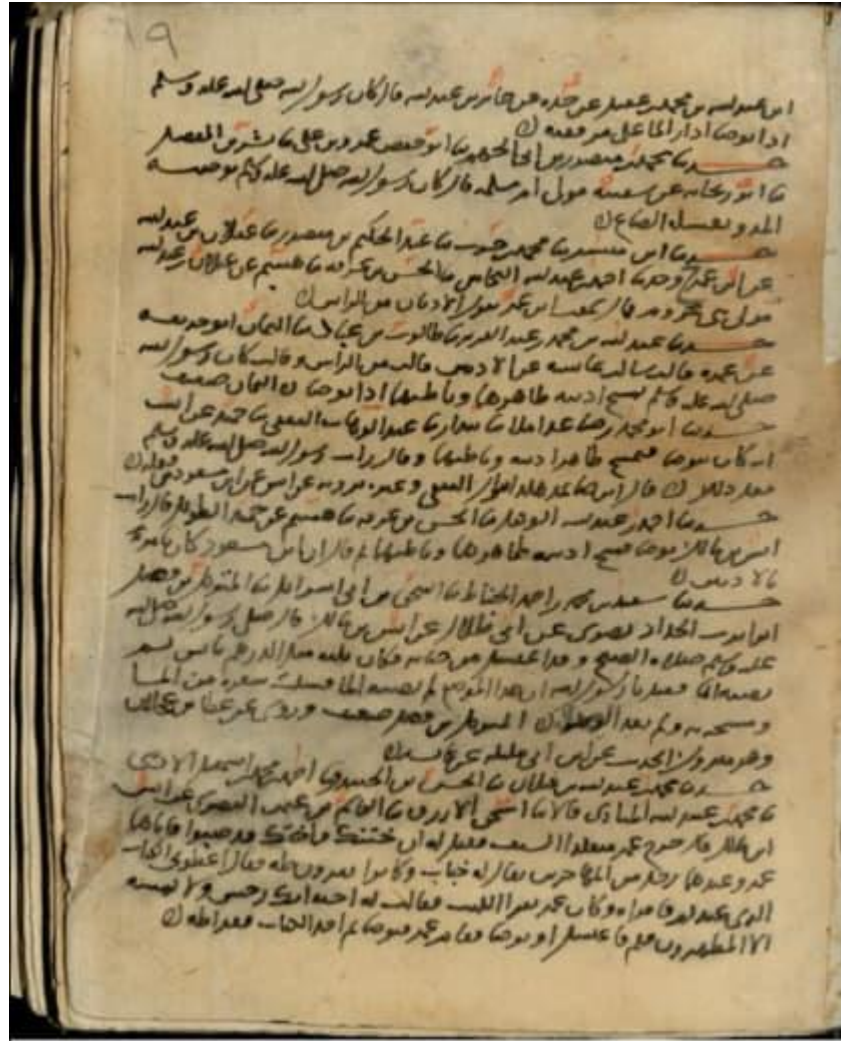 ١٩
ابن عبد الله بن محمد بن عقيل عن جده عن جابر بن عبد الله قال كان رسول الله صلى الله عليه وسلم
اذا توضا ادار الما على مرفقيه
حدثنا محمد بن منصور بن ابي الجهم نا ابو حفص عمرو بن علي نا بشر بن المفضل
نا ابو ريحانة عن سفينة مولى ام سلمة قال كان رسول الله صلى الله عليه وسلم يوضيه
المد ويغسله الصاع
حدثنا ابن منيع نا محمد بن نا عبد الحكيم بن منصور نا غيلان بن عبد الله
عن ابن عمر ح وحدثنا احمد بن عبد الله النحاس نا الحسن بن عرفة نا هشيم عن غيلان بن عبد الله
مولى بني مخزوم قال سمعت ابن عمر يقول الاذنان من الراس
حدثنا عبد الله بن محمد بن عبد العزيز نا طالوت بن عباد نا اليمان ابو حذيفة
عن عمرة قالت سالت عائشة عن الاذنين قالت من الراس وقالت كان رسول الله
صلى الله عليه وسلم يمسح اذنيه ظاهرهما وباطنهما اذا توضا اليمان ضعيف
حدثنا ابو محمد بن صاعد املاء نا بندار نا عبد الوهاب الثقفي نا حميد عن انس
انه كان يتوضا فيمسح ظاهر اذنيه وباطنهما وقال رايت رسول الله صلى الله عليه وسلم
يفعل ذلك قال ابن صاعد هكذا يقول الثقفي وغيره يرويه عن انس عن ابن مسعود من فعله
حدثنا احمد بن عبد الله الوكيل نا الحسن بن عرفة نا هشيم عن حميد الطويل قال رايت
انس بن مالك توضا فمسح اذنيه ظاهرهما وباطنهما ثم قال ان ابن مسعود كان يامر
بالاذنين
حدثنا سعيد بن محمد بن احمد الحناط نا اسحق بن ابي اسرائيل نا المتوكل بن فضيل
ابو ايوب الحداد بصري عن ابي ظلال عن انس بن مالك قال صلى رسول الله صلى الله
عليه وسلم صلاة الصبح وقد اغتسل من جنابة فكان نكتة مثل الدرهم يابس لم
يصبه الما فقيل يا رسول الله ان هذا الموضع لم يصبه الما فسلت شعره من الما
ومسحه به ولم يعد الصلاة المتوكل بن فضيل ضعيف وروي عن عطا بن عجلان
وهو متروك الحديث عن ابن ابي مليكة عن عائشة
حدثنا محمد بن عبد الله بن غيلان نا الحسن بن الجنيد ونا احمد بن محمد بن اسمعيل الادمي
نا محمد بن عبيد الله المنادي قالا نا اسحق الازرق نا القاسم بن عثمن البصري عن انس
ابن مالك قال خرج عمر متقلدا السيف فقيل له ان ختنك واختك قد صبوا فاتاهما
عمر وعندهما رجل من المهاجرين يقال له خباب وكانوا يقرون طه فقال اعطوني الكتاب
الذي عندكم فاقراه وكان عمر يقرا الكتب فقالت له اخته انك رجس ولا يمسه
الا المطهرون فقم فاغتسل او توضا فقام عمر فتوضا ثم اخذ الكتاب فقرا طه